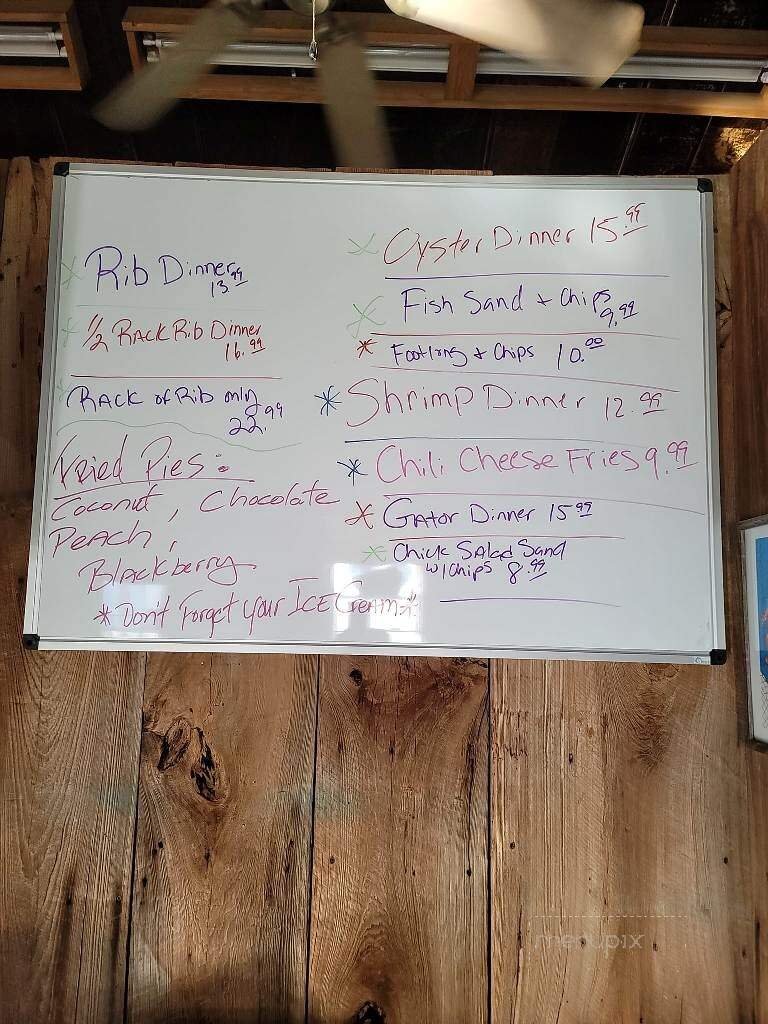 Rib Dinner
13.99
1/2 Rack Rib Dinner
16.99
Rack of Rib only
22.99
Fried Pies:
Coconut, Chocolate
Peach,
Blackberry
* Don't Forget your Ice Cream *
Oyster Dinner 15.99
Fish Sand + Chips
9.99
* Footlong + Chips 10.00
* Shrimp Dinner 12.99
* Chili Cheese Fries 9.99
* Gator Dinner 15.99
* Chick Salad Sand
w/chips 8.99
menupix